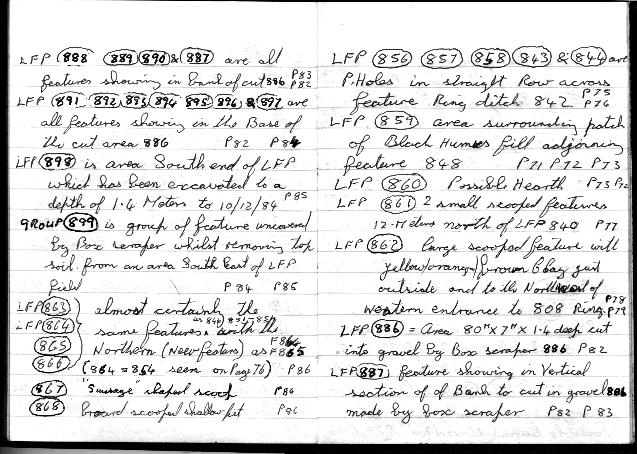 LFP 888 889 890 & 887 are all
features showing in bank of cut 886 P83 P82
LFP 891 892 893 894 895 896 & 897 are
all features showing in the Base of
the cut area 886 P82 P84
LFP 898 is area South end of LFP
which has been excavated to a
depth of 1.4 Meters to 10/12/84 P85
GROUP 899 is group of feature uncovered
by Box scraper whilst removing top
soil from an area South East of LFP
field P84 P85
LFP 863 almost certainly the
LFP 864 same features with the
865 Northern (New features) as F864 F865
866 (864 = 864 seen on Page 76) P86
867 "Sausage" shaped scoop P86
868 broard scooped shallow pit P86
LFP 856 857 858 843 & 844 are
P.Holes in straight Row across
feature Ring ditch 842 P75 P76
LFP 859 area surrounding patch
of Black Humus fill adjoining
feature 848 P71 P72 P73
LFP 860 Possible Hearth P73 P72
LFP 861 2 small scooped features
12-Meters north of LFP 840 P77
LFP 862 large scooped feature will
yellow/orange/brown Clay just
outside and to the of
western entrance to 808 Ring. P78 P79
LFP 886 = Area 80" X 7" X 1.4 deep cut
into gravel by Box scraper 886 P82
LFP 887 feature showing in Vertical
section of of Bank to cut in gravel 886
made by box scraper P82 P83